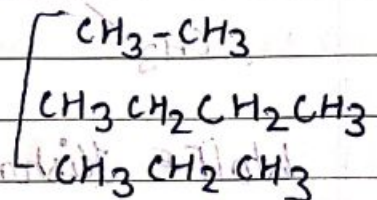 CH₃-CH₃
CH₃ CH₂ CH₂ CH₃
CH₃ CH₂ CH₃